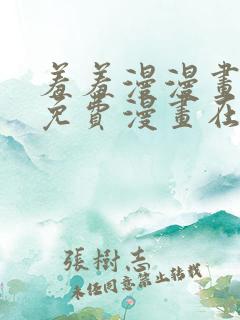 羞羞漫漫畫
免費漫畫在
張樹志
未经同意禁止转载